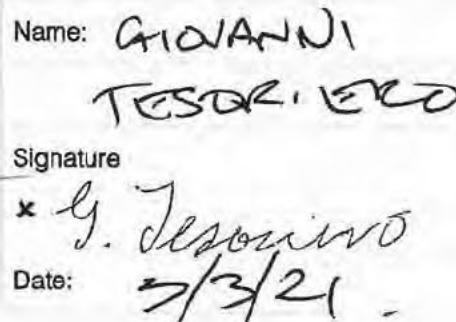 Name: GIOVANNI
TESORIERO
Signature
x G. Tesoriero
Date: 5/3/21.